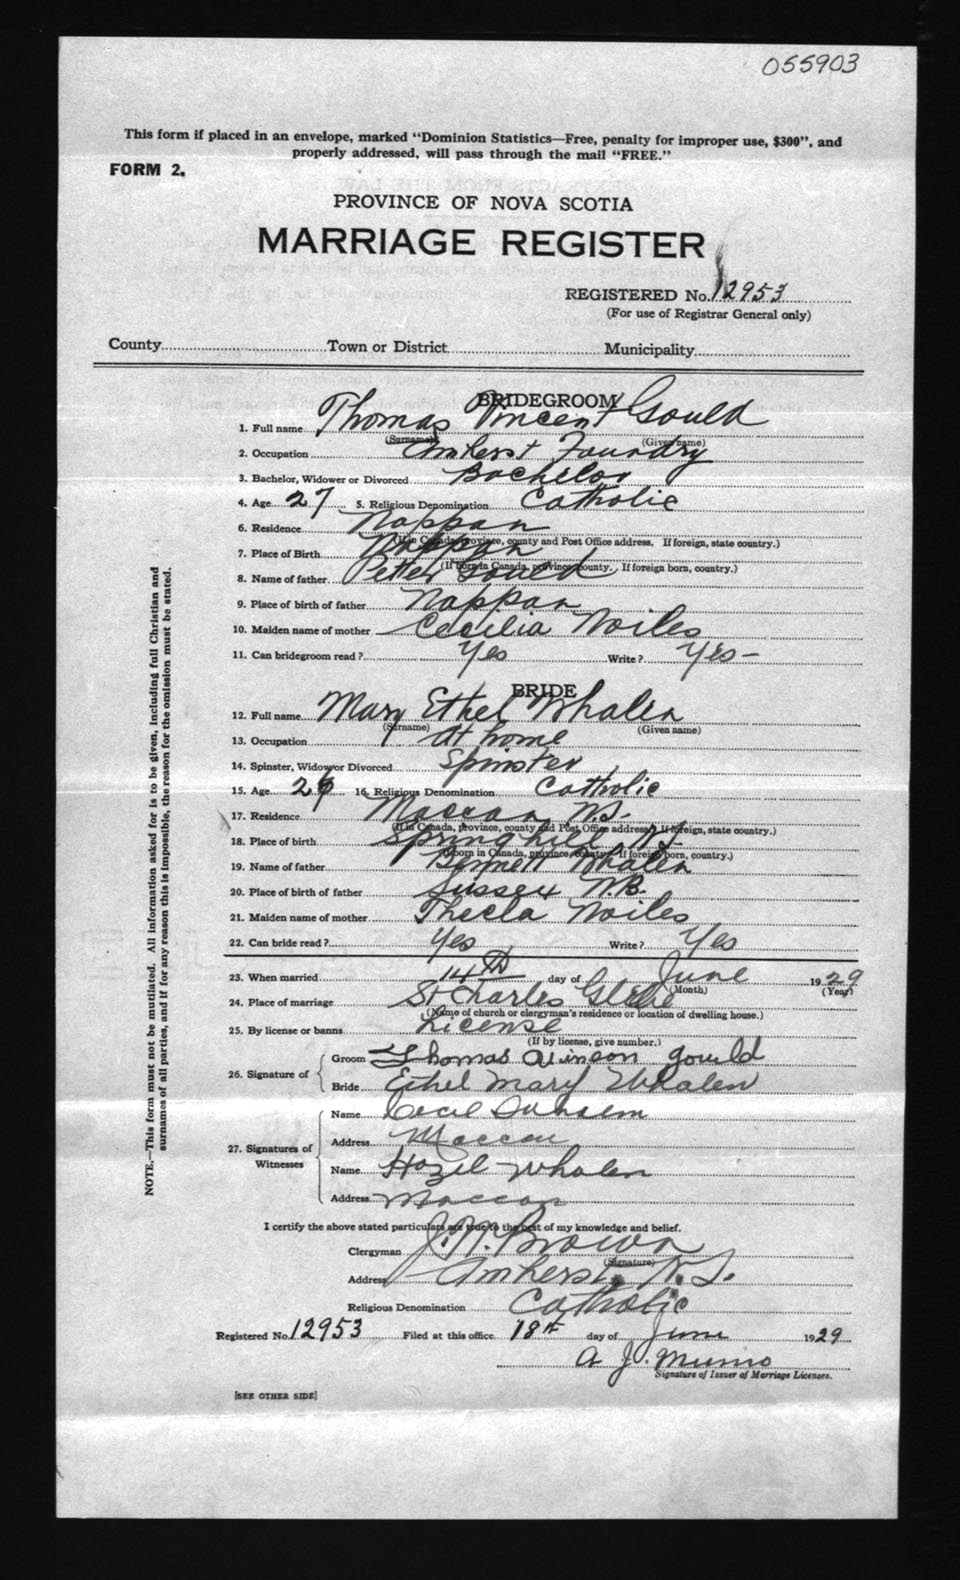 055903
This form if placed in an envelope, marked "Dominion Statistics—Free, penalty for improper use, $300", and
properly addressed, will pass through the mail "FREE."
FORM 2.
PROVINCE OF NOVA SCOTIA
MARRIAGE REGISTER
REGISTERED No. 12953
(For use of Registrar General only)
County Town or District Municipality
BRIDEGROOM
1. Full name Thomas Vincent Gould
(Surname) (Given name)
2. Occupation Amherst Foundry
3. Bachelor, Widower or Divorced Bachelor
4. Age 27 5. Religious Denomination Catholic
6. Residence Nappan
(If in Canada, province, county and Post Office address. If foreign, state country.)
7. Place of Birth Nappan
(If born in Canada, province, county. If foreign born, country.)
8. Name of father Petter Gould
9. Place of birth of father Nappan
10. Maiden name of mother Cecilia Noiles
11. Can bridegroom read? Yes Write? Yes —
BRIDE
12. Full name Mary Ethel Whalen
(Surname) (Given name)
13. Occupation At home
14. Spinster, Widow or Divorced Spinster
15. Age 26 16. Religious Denomination Catholic
17. Residence Maccan N.S.
(If in Canada, province, county and Post Office address. If foreign, state country.)
18. Place of birth Springhill N.S.
(If born in Canada, province, county. If foreign born, country.)
19. Name of father Bennett Whalen
20. Place of birth of father Sussex N.B.
21. Maiden name of mother Thecla Noiles
22. Can bride read? Yes Write? Yes
23. When married 14th day of June 1929
(Month) (Year)
24. Place of marriage St Charles Glebe
(Name of church or clergyman's residence or location of dwelling house.)
25. By license or banns License
(If by license, give number.)
26. Signature of Groom Thomas Vinson Gould
Bride Ethel Mary Whalen
27. Signatures of Witnesses
Name Cecil
Address Maccan
Name Hazel Whalen
Address Maccan
I certify the above stated particulars are true to the best of my knowledge and belief.
Clergyman J. N. Brown
(Signature)
Address Amherst, N.S.
Religious Denomination Catholic
Registered No. 12953 Filed at this office 18th day of June 1929
A J. Munro
Signature of Issuer of Marriage Licenses.
[SEE OTHER SIDE]
NOTE.—This form must not be mutilated. All information asked for is to be given, including full Christian and
surnames of all parties, and if for any reason this is impossible, the reason for the omission must be stated.